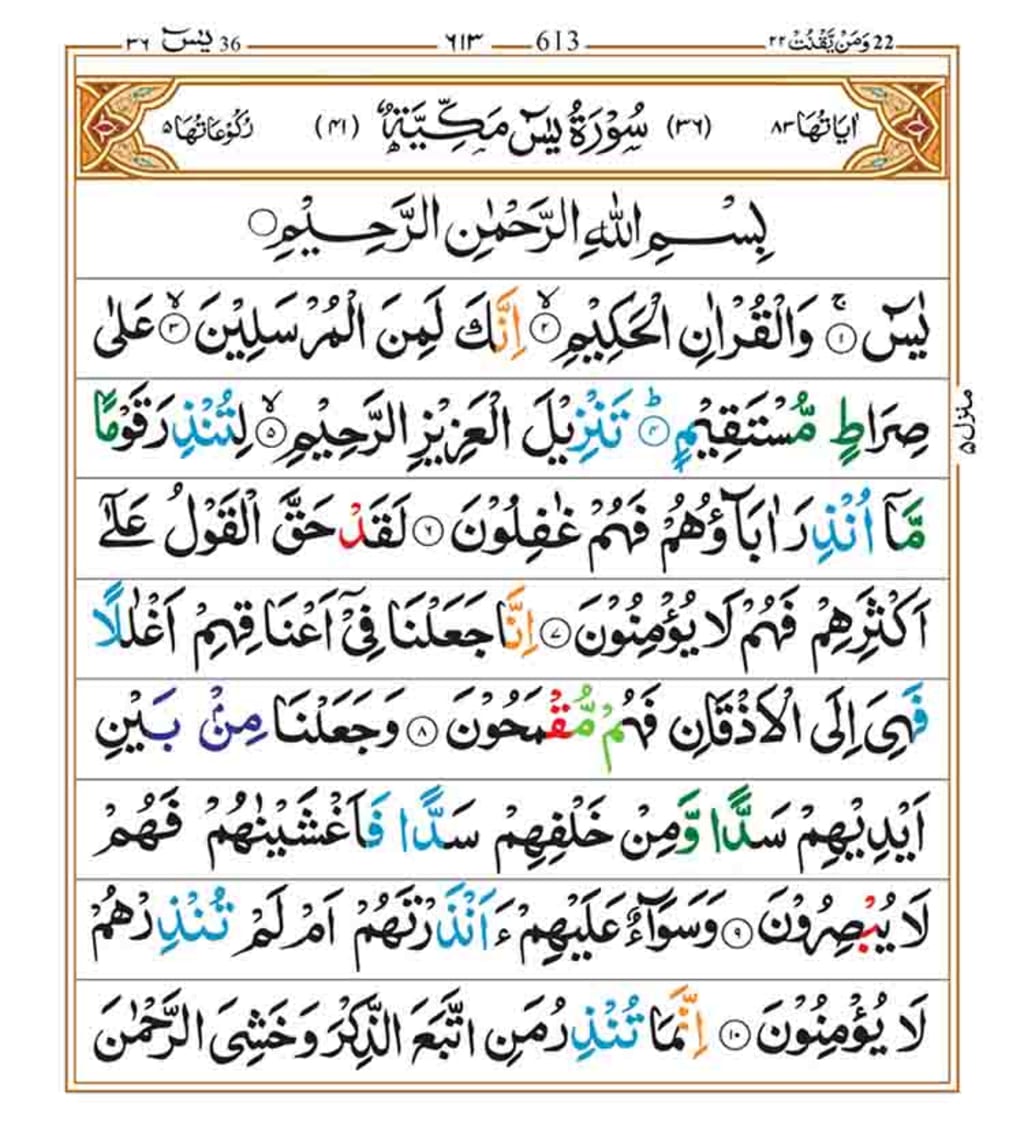 36 يٰسٓ ٣٦
613 ٦١٣
22 وَمَنْ يَّقْنُتْ ٢٢
اٰيَاتُهَا ٨٣ (٣٦) سُوْرَةُ يٰسٓ مَكِّيَّةٌ (٤١) رُكُوْعَاتُهَا ٥
بِسْمِ اللّٰهِ الرَّحْمٰنِ الرَّحِيْمِ
يٰسٓ ۚ ﴿١﴾ وَالْقُرْاٰنِ الْحَكِيْمِ ۙ ﴿٢﴾ اِنَّكَ لَمِنَ الْمُرْسَلِيْنَ ۙ ﴿٣﴾ عَلٰى
صِرَاطٍ مُّسْتَقِيْمٍ ؕ ﴿٤﴾ تَنْزِيْلَ الْعَزِيْزِ الرَّحِيْمِ ۙ ﴿٥﴾ لِتُنْذِرَ قَوْمًا
مَّاۤ اُنْذِرَ اٰبَآؤُهُمْ فَهُمْ غٰفِلُوْنَ ﴿٦﴾ لَقَدْ حَقَّ الْقَوْلُ عَلٰٓى
اَكْثَرِهِمْ فَهُمْ لَا يُؤْمِنُوْنَ ﴿٧﴾ اِنَّا جَعَلْنَا فِيْٓ اَعْنَاقِهِمْ اَغْلٰلًا
فَهِيَ اِلَى الْاَذْقَانِ فَهُمْ مُّقْمَحُوْنَ ﴿٨﴾ وَجَعَلْنَا مِنْۢ بَيْنِ
اَيْدِيْهِمْ سَدًّا وَّمِنْ خَلْفِهِمْ سَدًّا فَاَغْشَيْنٰهُمْ فَهُمْ
لَا يُبْصِرُوْنَ ﴿٩﴾ وَسَوَآءٌ عَلَيْهِمْ ءَاَنْذَرْتَهُمْ اَمْ لَمْ تُنْذِرْهُمْ
لَا يُؤْمِنُوْنَ ﴿١٠﴾ اِنَّمَا تُنْذِرُ مَنِ اتَّبَعَ الذِّكْرَ وَخَشِيَ الرَّحْمٰنَ
منزل ٥